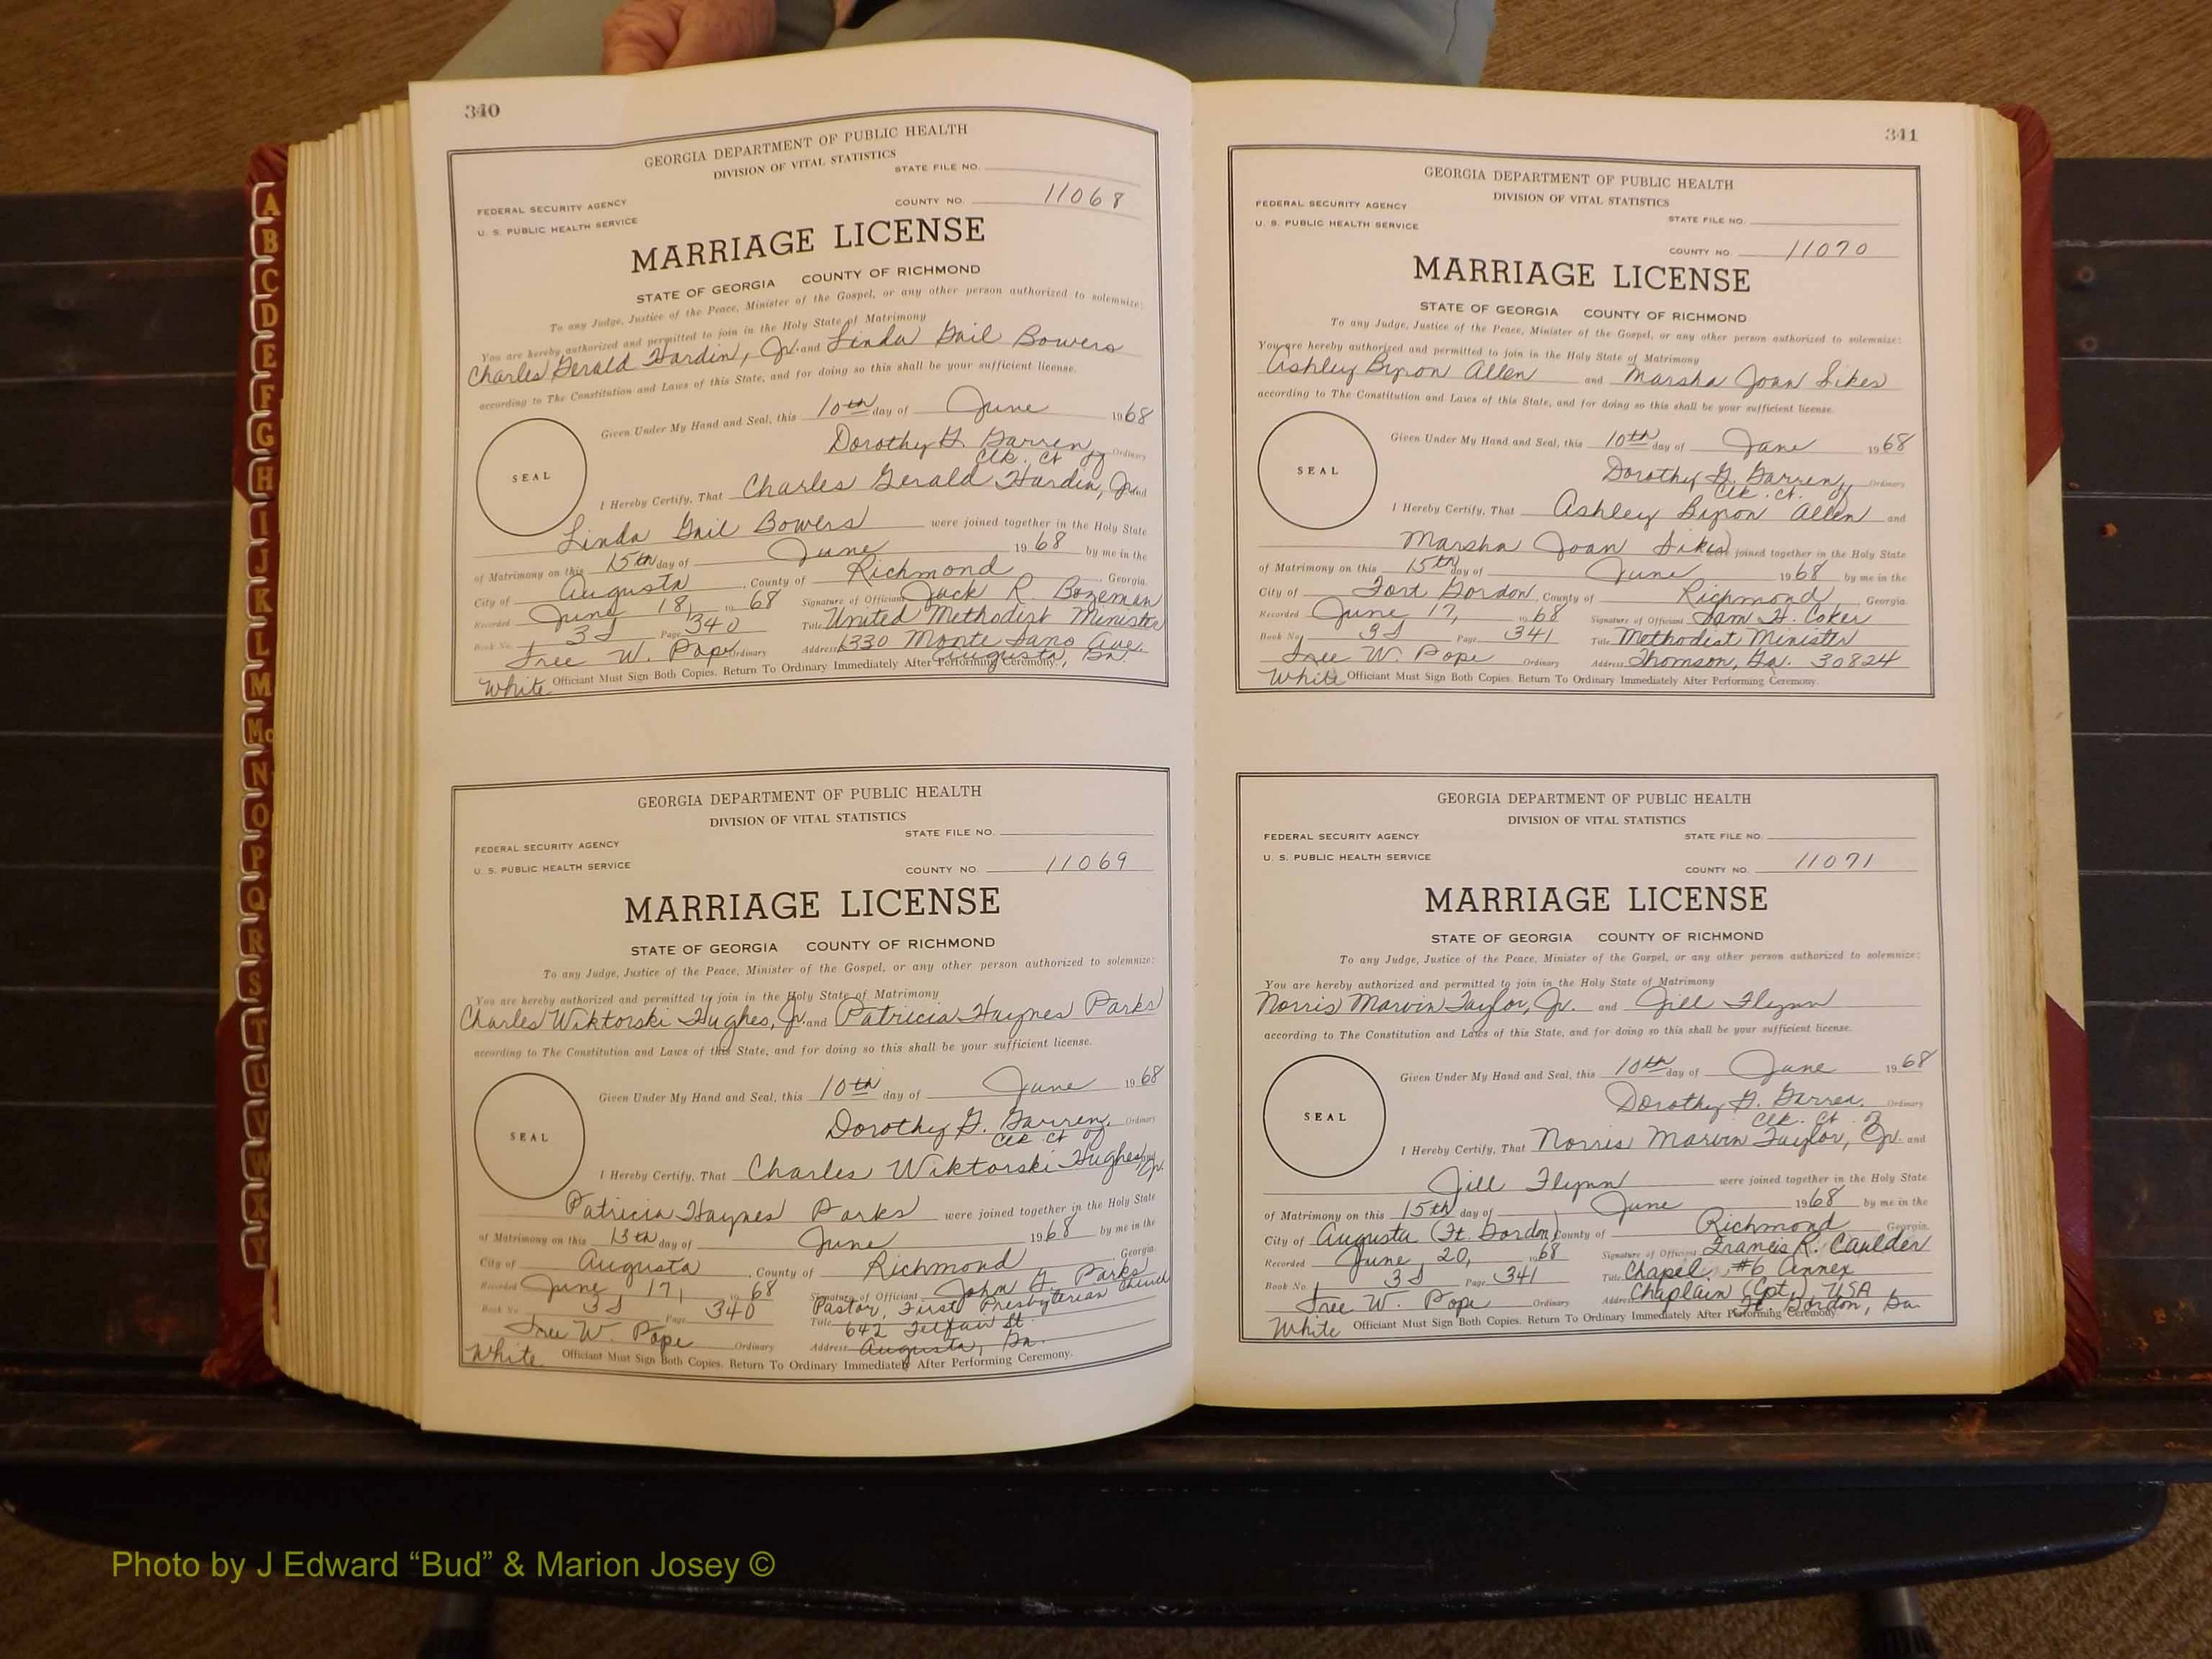 A
B
C
D
E
F
G
H
I
J
K
L
M
Mc
N
O
P
Q
R
S
T
U
V
W
X
Y
340
GEORGIA DEPARTMENT OF PUBLIC HEALTH
DIVISION OF VITAL STATISTICS
STATE FILE NO.
FEDERAL SECURITY AGENCY
COUNTY NO. 11068
U. S. PUBLIC HEALTH SERVICE
MARRIAGE LICENSE
STATE OF GEORGIA COUNTY OF RICHMOND
To any Judge, Justice of the Peace, Minister of the Gospel, or any other person authorized to solemnize:
You are hereby authorized and permitted to join in the Holy State of Matrimony
Charles Gerald Hardin, Jr. and Linda Gail Bowers
according to The Constitution and Laws of this State, and for doing so this shall be your sufficient license.
Given Under My Hand and Seal, this 10th day of June 1968
Dorothy G. Garren, Ordinary
Clk. Ct of
SEAL
I Hereby Certify, That Charles Gerald Hardin, Jr. and
Linda Gail Bowers were joined together in the Holy State
of Matrimony on this 15th day of June 1968 by me in the
City of Augusta, County of Richmond, Georgia.
Recorded June 18, 1968 Signature of Officiant Jack R. Bozeman
Book No. 3J Page 340 Title United Methodist Minister
Tree W. Pope Ordinary Address 1330 Monte Sano Ave.
Augusta, Ga.
White Officiant Must Sign Both Copies. Return To Ordinary Immediately After Performing Ceremony.
GEORGIA DEPARTMENT OF PUBLIC HEALTH
DIVISION OF VITAL STATISTICS
STATE FILE NO.
FEDERAL SECURITY AGENCY
U. S. PUBLIC HEALTH SERVICE
COUNTY NO. 11069
MARRIAGE LICENSE
STATE OF GEORGIA COUNTY OF RICHMOND
To any Judge, Justice of the Peace, Minister of the Gospel, or any other person authorized to solemnize:
You are hereby authorized and permitted to join in the Holy State of Matrimony
Charles Wiktorski Hughes, Jr. and Patricia Haynes Parks
according to The Constitution and Laws of this State, and for doing so this shall be your sufficient license.
Given Under My Hand and Seal, this 10th day of June 1968
Dorothy G. Garren, Ordinary
Clk Ct of
SEAL
I Hereby Certify, That Charles Wiktorski Hughes, Jr. and
Patricia Haynes Parks were joined together in the Holy State
of Matrimony on this 13th day of June 1968 by me in the
City of Augusta, County of Richmond, Georgia.
Recorded June 17, 1968 Signature of Officiant John G. Parks
Book No. 3J Page 340 Pastor, First Presbyterian Church
Title 642 Telfair St.
Tree W. Pope Ordinary Address Augusta, Ga.
White Officiant Must Sign Both Copies. Return To Ordinary Immediately After Performing Ceremony.
341
GEORGIA DEPARTMENT OF PUBLIC HEALTH
DIVISION OF VITAL STATISTICS
FEDERAL SECURITY AGENCY
STATE FILE NO.
U. S. PUBLIC HEALTH SERVICE
COUNTY NO. 11070
MARRIAGE LICENSE
STATE OF GEORGIA COUNTY OF RICHMOND
To any Judge, Justice of the Peace, Minister of the Gospel, or any other person authorized to solemnize:
You are hereby authorized and permitted to join in the Holy State of Matrimony
Ashley Byron Allen and Marsha Joan Sikes
according to The Constitution and Laws of this State, and for doing so this shall be your sufficient license.
Given Under My Hand and Seal, this 10th day of June 1968
Dorothy G. Garren, Ordinary
Clk. Ct. of
SEAL
I Hereby Certify, That Ashley Byron Allen and
Marsha Joan Sikes joined together in the Holy State
of Matrimony on this 15th day of June 1968 by me in the
City of Fort Gordon, County of Richmond, Georgia.
Recorded June 17, 1968 Signature of Officiant Sam H. Coker
Book No. 3J Page 341 Title Methodist Minister
Tree W. Pope Ordinary Address Thomson, Ga. 30824
White Officiant Must Sign Both Copies. Return To Ordinary Immediately After Performing Ceremony.
GEORGIA DEPARTMENT OF PUBLIC HEALTH
DIVISION OF VITAL STATISTICS
FEDERAL SECURITY AGENCY
STATE FILE NO.
U. S. PUBLIC HEALTH SERVICE
COUNTY NO. 11071
MARRIAGE LICENSE
STATE OF GEORGIA COUNTY OF RICHMOND
To any Judge, Justice of the Peace, Minister of the Gospel, or any other person authorized to solemnize:
You are hereby authorized and permitted to join in the Holy State of Matrimony
Norris Marvin Taylor, Jr. and Jill Flynn
according to The Constitution and Laws of this State, and for doing so this shall be your sufficient license.
Given Under My Hand and Seal, this 10th day of June 1968
Dorothy G. Garren, Ordinary
Clk. Ct. of
SEAL
I Hereby Certify, That Norris Marvin Taylor, Jr. and
Jill Flynn were joined together in the Holy State
of Matrimony on this 15th day of June 1968 by me in the
City of Augusta (Ft. Gordon) County of Richmond, Georgia.
Recorded June 20, 1968 Signature of Officiant Francis R. Caulder
Book No. 3J Page 341 Title Chapel #6 Annex
Tree W. Pope Ordinary Address Chaplain (Cpt. USA
Ft. Gordon, Ga.
White Officiant Must Sign Both Copies. Return To Ordinary Immediately After Performing Ceremony.
Photo by J Edward “Bud” & Marion Josey ©